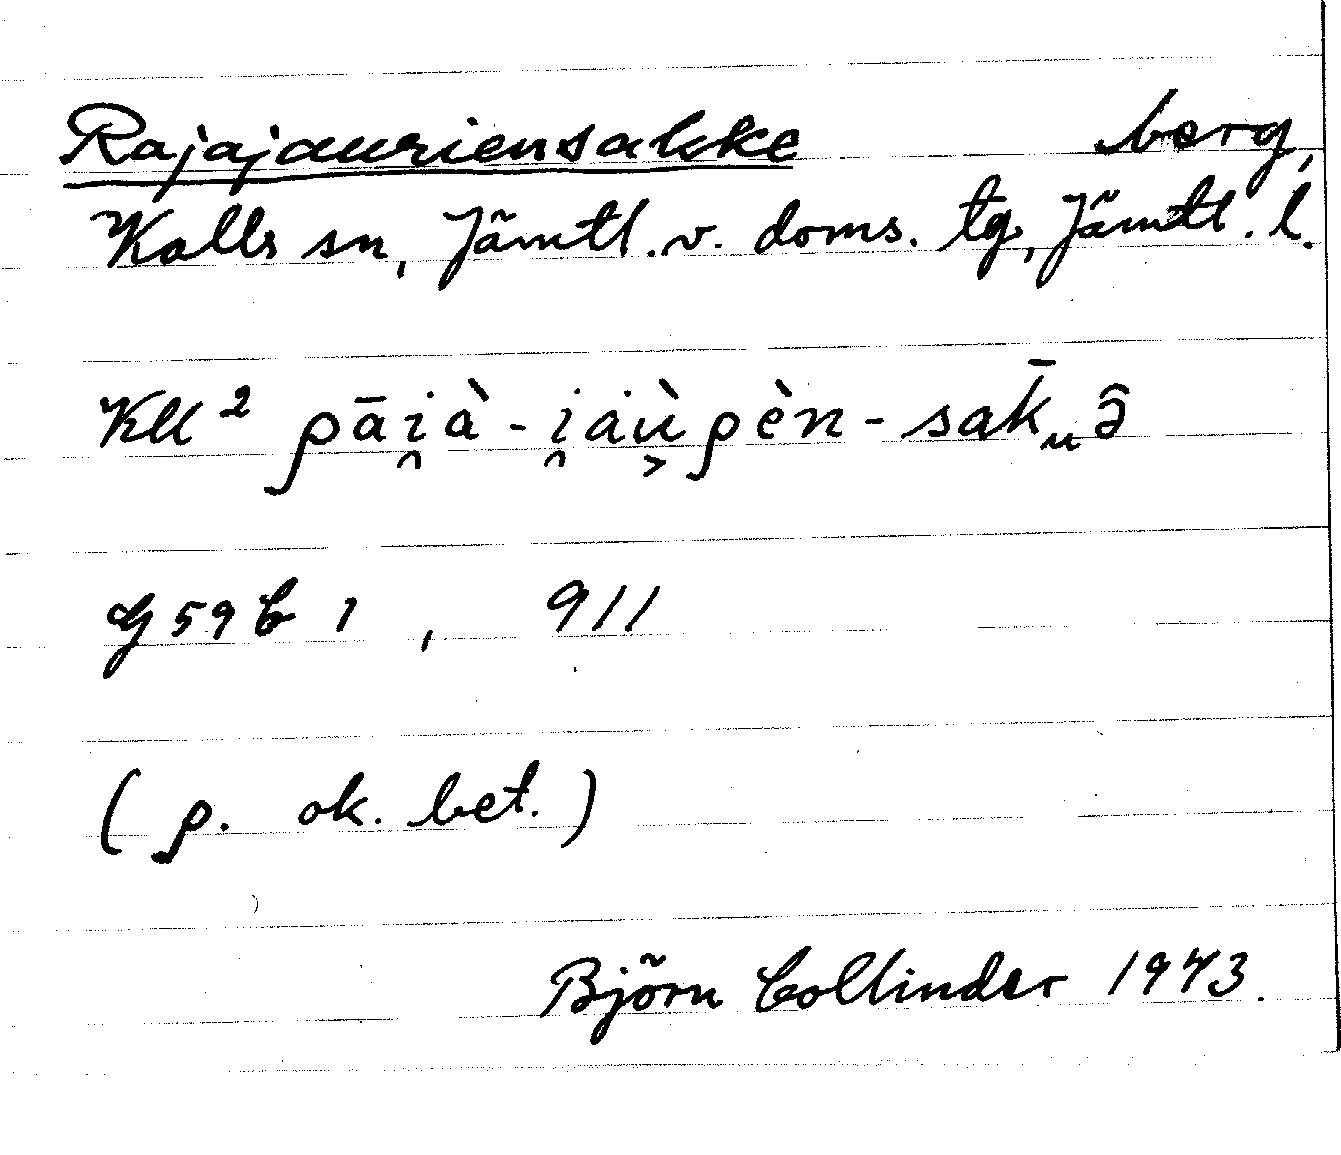 Rajajauriensakke berg,
Kalls sn, Jämtl. v. doms. tg, Jämtl. l.
Kll² ρāi̯à-i̯ȧùρèn-sak̄
G 59 b 1, 911
(ρ. ok. bet.)
Björn Collinder 1943.